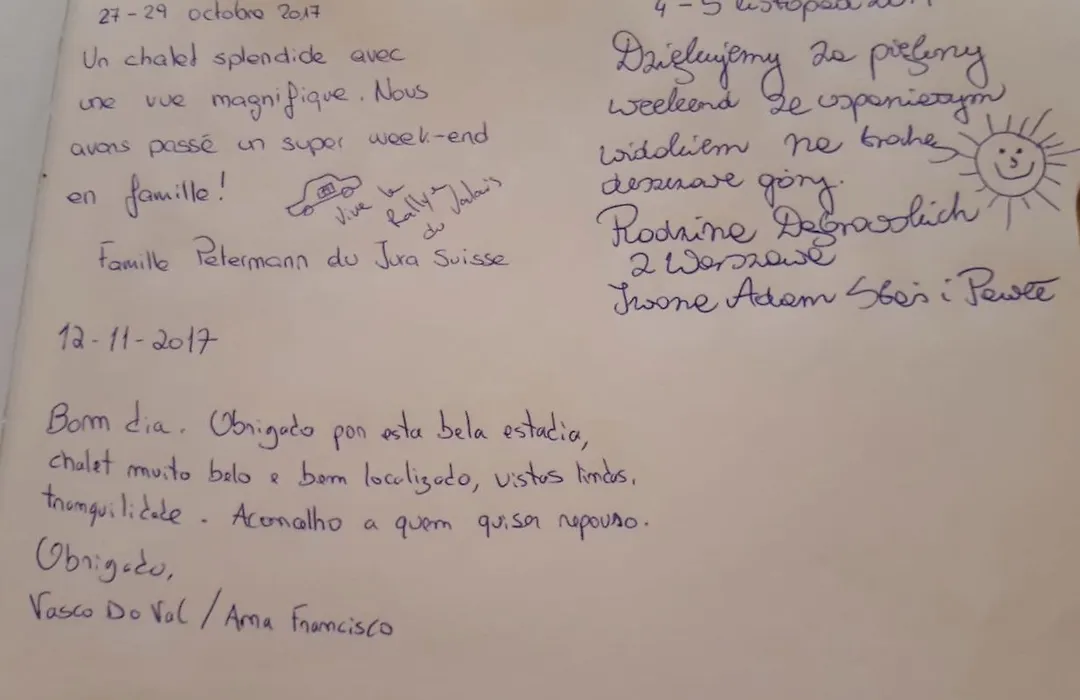 27-29 octobre 2017
Un chalet splendide avec
une vue magnifique. Nous
avons passé un super week-end
en famille!
Vive le
Rallye
du Valais
Famille Petermann du Jura Suisse
4-5 listopad
Dziękujemy za piękny
weekend ze wspaniałym
widokiem na trochę
deszczowe góry.
Rodzina
z Warszawy
Iwona Adam Staś i Paweł
12-11-2017
Bom dia. Obrigado por esta bela estadia,
chalet muito belo e bem localizado, vistas lindas,
tranquilidade. Aconcelho a quem quiser repouso.
Obrigado,
Vasco Do Val / Ana Francisco